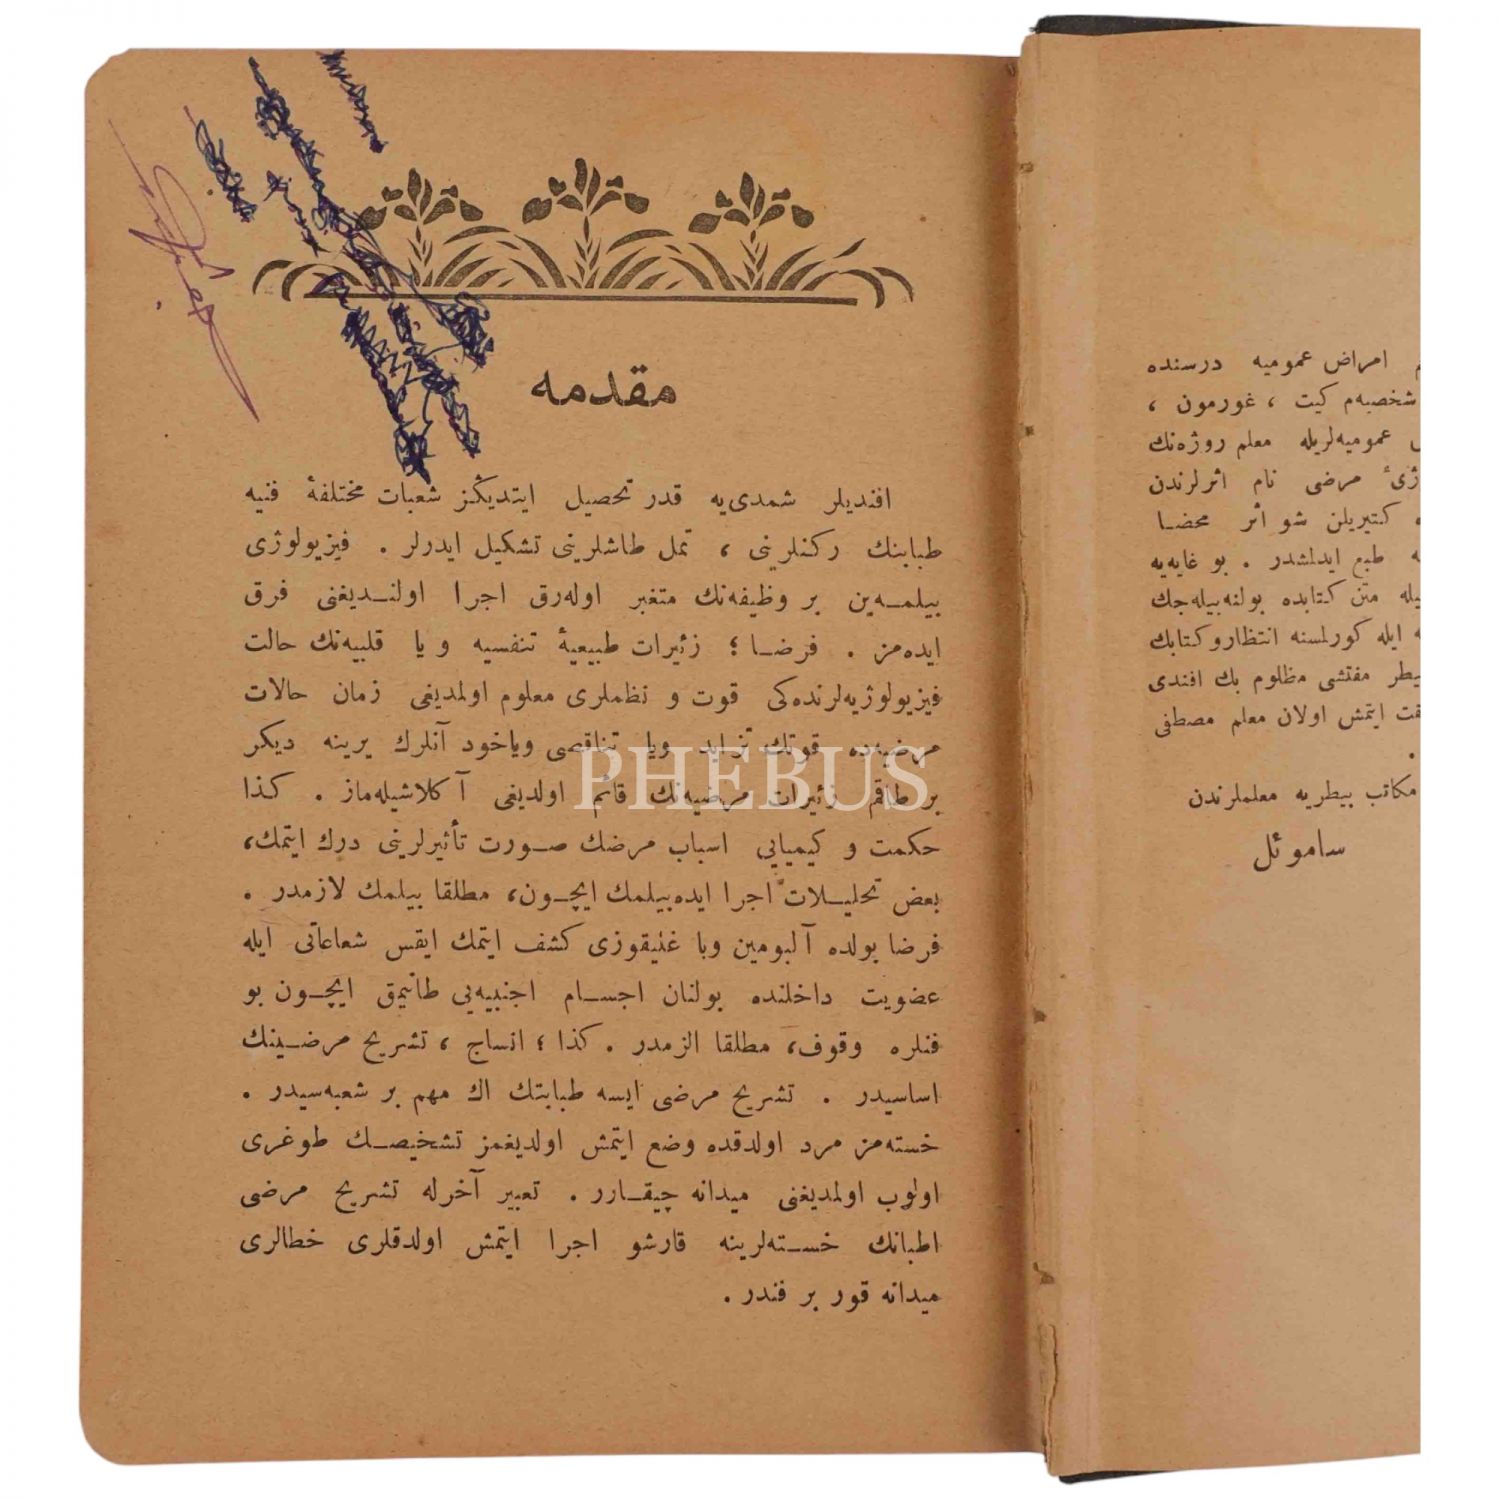 مقدمه
افنديلر شمدی‌يه قدر تحصيل ايتديڭز شعبات مختلفۀ فنيه
طبابتك ركنلرينی ، تمل طاشلرينی تشكيل ايدرلر . فيزيولوژی
بيلمـه‌ين بر وظيفه‌نك متغير اوله‌رق اجرا اولنـديغنی فرق
ايده‌مز . فرضـا ؛ زئيرات طبيعيۀ تنفسيه و يا قلبيه‌نك حالت
فيزيولوژيه‌لرنده‌كی قوت و نظملری معلوم اولمديغی زمان حالات
مرضيه‌ده قوتك تزايد ويا تناقصی وياخود آنلرك يرينه ديكر
بر طاقم زئيرات مرضيه‌نك قائم اولديغی آكلاشيله‌ماز . كذا
حكمت و كيميايی اسباب مرضك صـورت تأثيرلرينی درك ايتمك،
بعض تحليـلات اجرا ايده‌بيلمك ايچـون، مطلقا بيلمك لازمدر .
فرضا بولده آلبومين ويا غليقوزی كشف ايتمك ايقس شعاعاتی ايله
عضويت داخلنده بولنان اجسـام اجنبيه‌يی طانيمق ايچـون بو
فنلره وقوف، مطلقا الزمدر . كذا ؛ انساج ، تشريح مرضـينك
اساسيدر . تشريح مرضی ايسه طبابتك اك مهم بر شعبه‌سيدر .
خسته‌مز مرد اولدقده وضع ايتمش اولديغمز تشخيصـك طوغری
اولوب اولمديغنی ميدانه چيقـارر . تعبير آخرله تشريح مرضی
اطبانك خسـته‌لرينه قارشو اجرا ايتمش اولدقلری خطالری
ميدانه قور بر فندر .
امراض عموميه درسنده
شخصيه‌م كيت ، غورمون ،
عموميه‌لريله معلم روژه‌نك
مرضی نام اثرلرندن
كتيريلن شو اثر محضـا
طبع ايدلمشدر . بو غايه‌يه
متن كتابده بولنه‌بيله‌جك
ايله كورلمسنه انتظار وكتابك
مفتشی مظلوم بك افندی
ايتمش اولان معلم مصطفی
مكاتب بيطريه معلملرندن
ساموئل
PHEBUS